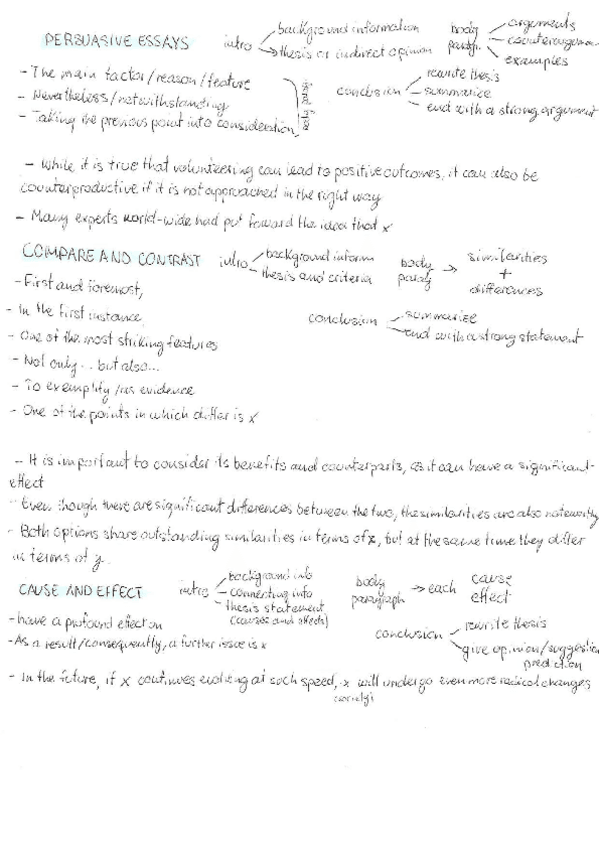 PERSUASIVE ESSAYS intro background information body paragr. argements
thesis or indirect opinion counterargumen
examples
- The main factor/reason/feature
- Nevertheless/notwithstanding
- Taking the previous point into consideration
conclusion rewrite thesis
summarize
end with a strong argument
- While it is true that volunteering can lead to positive outcomes, it can also be
counterproductive if it is not approached in the right way
- Many experts world-wide had put forward the idea that x
COMPARE AND CONTRAST intro background inform body paragr similarities
thesis and criteria +
differences
- First and foremost,
- In the first instance
- One of the most striking features
- Not only... but also...
- To exemplify/as evidence
- One of the points in which differ is x
conclusion summarize
end with a strong statement
- It is important to consider its benefits and counterparts, as it can have a significant
effect
- Even though there are significant differences between the two, the similarities are also noteworthy
- Both options share outstanding similarities in terms of x, but at the same time they differ
in terms of y.
CAUSE AND EFFECT intro background info body paragraph each cause
connecting info effect
thesis statement
(causes and effects)
- have a profound effect on
- As a result/consequently, a further issue is x
conclusion rewrite thesis
give opinion/suggestion
prediction
- In the future, if x continues evolving at such speed, x will undergo even more radical changes